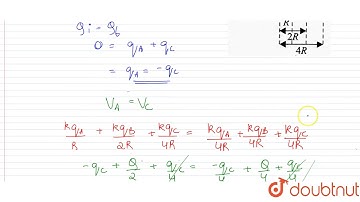 Qi = Qf
0 = qA + qC
= qA = -qC
VA = VC
kqA/R + kqB/2R + kqC/4R = kqA/4R + kqB/4R + kqC/4R
-qC + Q/2 + qC/4 = -qC/4 + Q/4 + qC/4
R
2R
4R
doubtnut